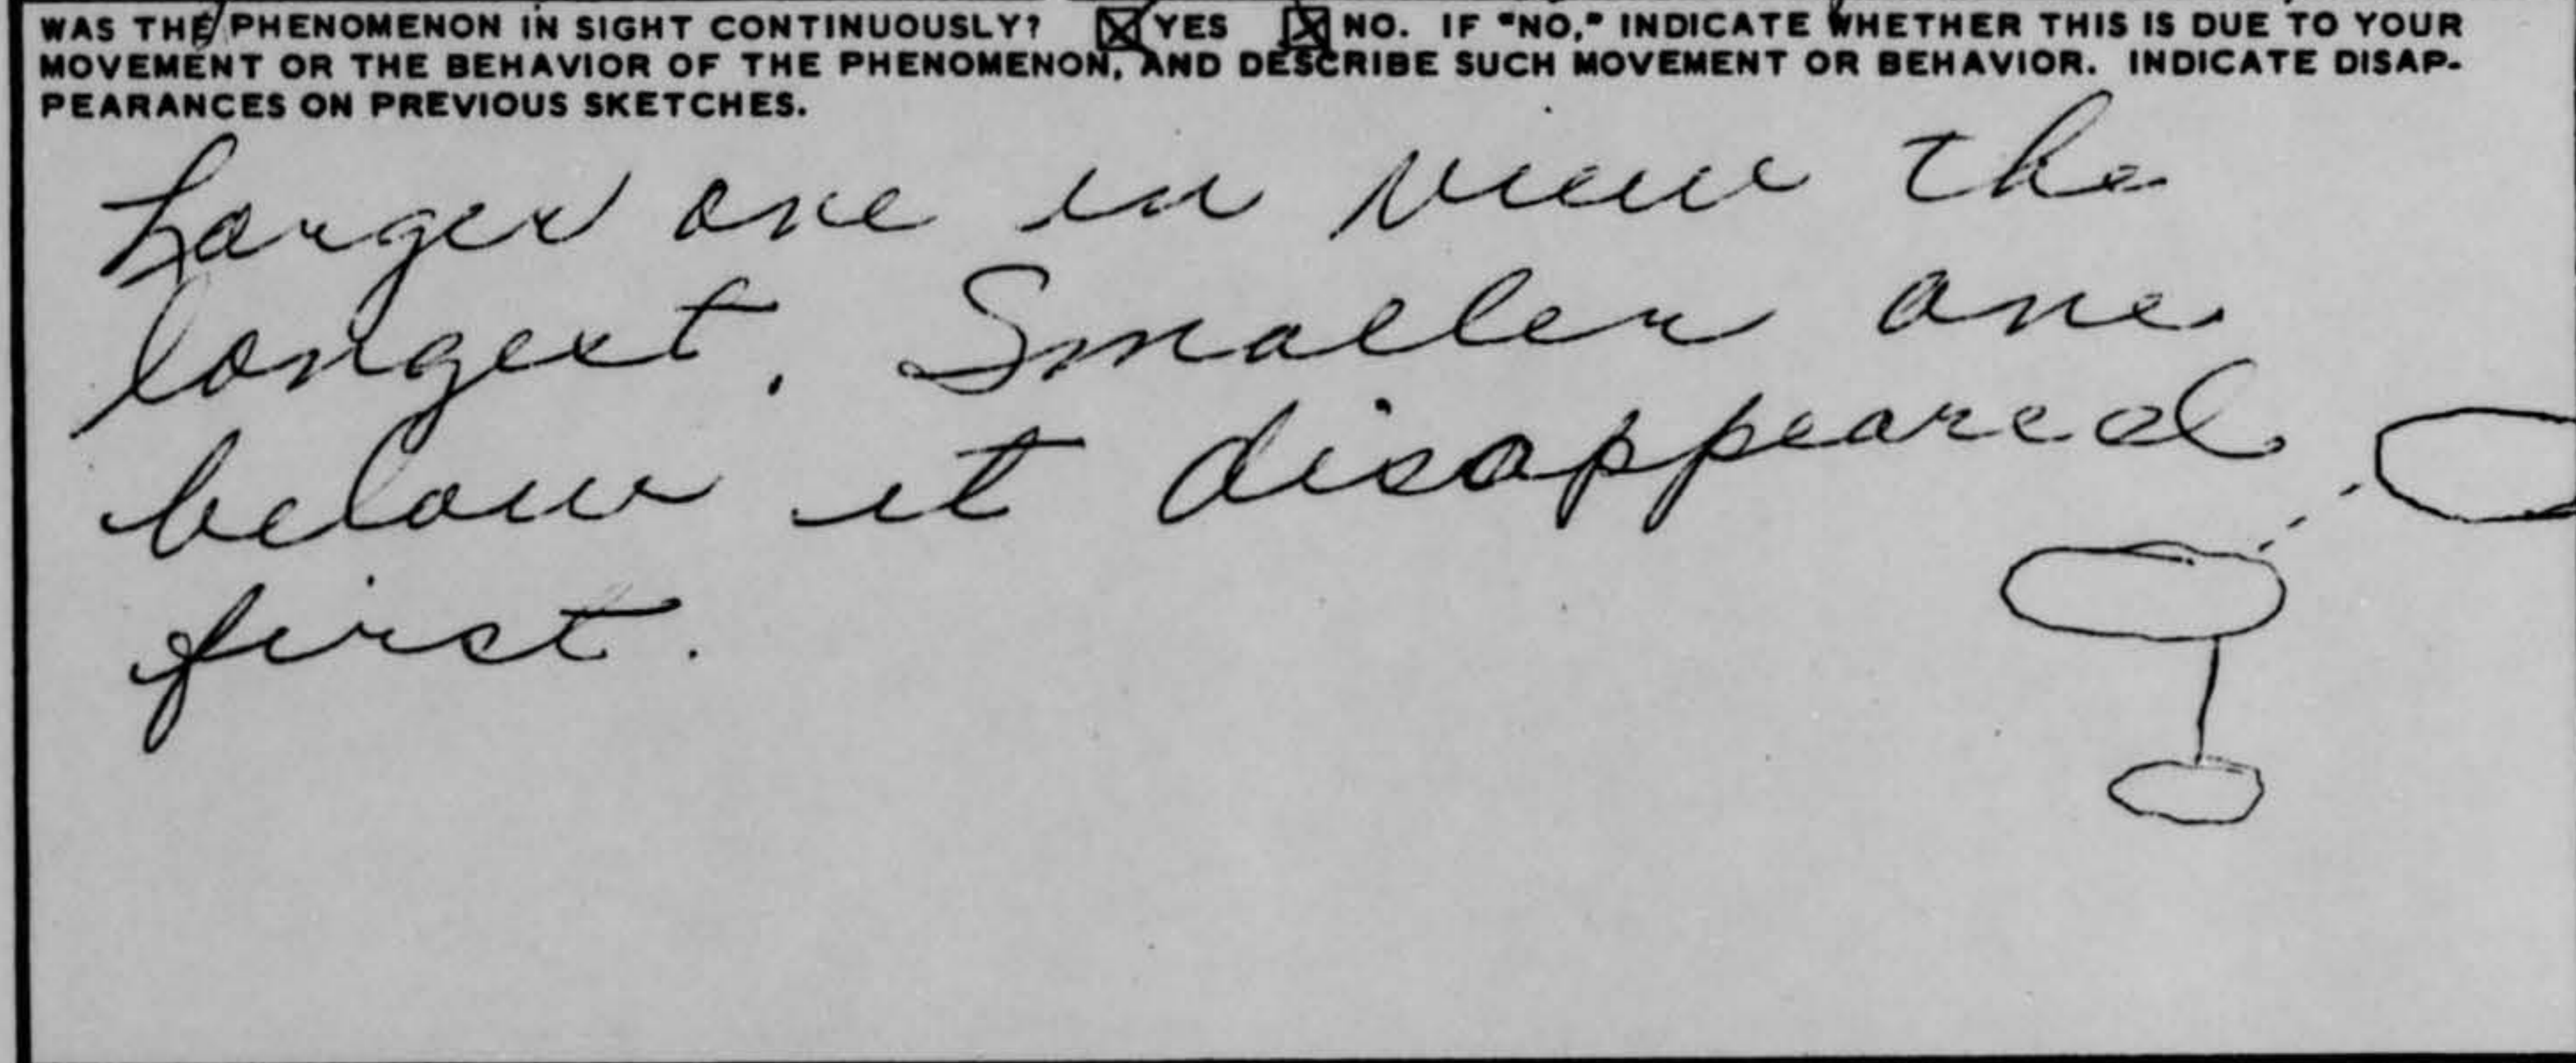 WAS THE PHENOMENON IN SIGHT CONTINUOUSLY? ☒ YES ☒ NO. IF "NO," INDICATE WHETHER THIS IS DUE TO YOUR
MOVEMENT OR THE BEHAVIOR OF THE PHENOMENON, AND DESCRIBE SUCH MOVEMENT OR BEHAVIOR. INDICATE DISAP-
PEARANCES ON PREVIOUS SKETCHES.
Larger one in view the
longest. Smaller one
below it disappeared
first.